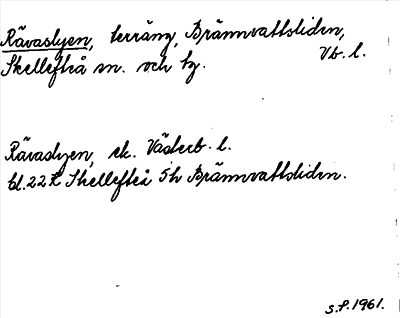 Rävaslyen, terräng, Brännvattsliden,
Skellefteå sn. och tg. Vb. l.
Rävaslyen, ek. Västerb. l.
bl. 22K Skellefteå 5h Brännvattsliden.
S.P. 1961.